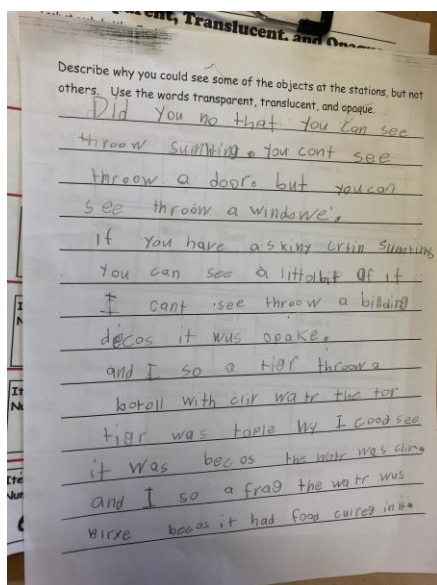 Transparent, Translucent, and Opaque
Describe why you could see some of the objects at the stations, but not
others. Use the words transparent, translucent, and opaque.
Did You no that You can see
throow sumting. You cont see
throow a door. but you can
see throow a windowe.
if You have a skiny crtin sumting
You can see a littolbit of it
I cant see throow a bilding
decos it wus opake.
and I so a tigr throow a
botoll with clir watr the tor
tigr was taple hy I cood see
it was becos the watr was cling
and I so a frag the watr wus
birxe becos it had food cuireg in it